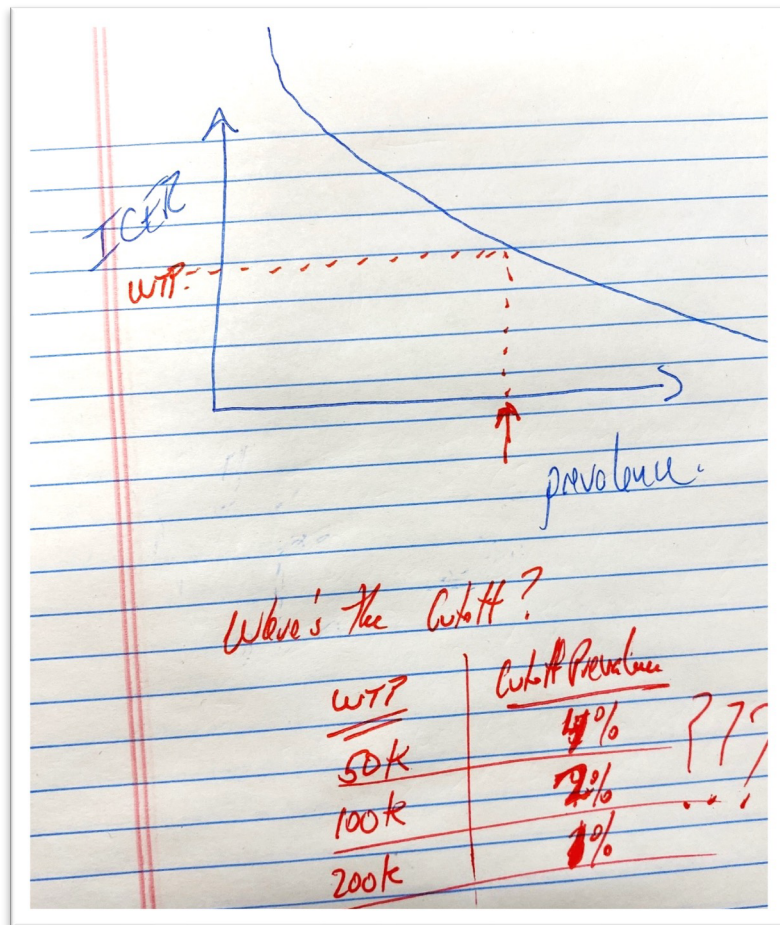 ICER
WTP
prevalence.
Where's the Cutoff?
WTP Cutoff Prevalence
50k 4% ???
100k 2%
200k 1%